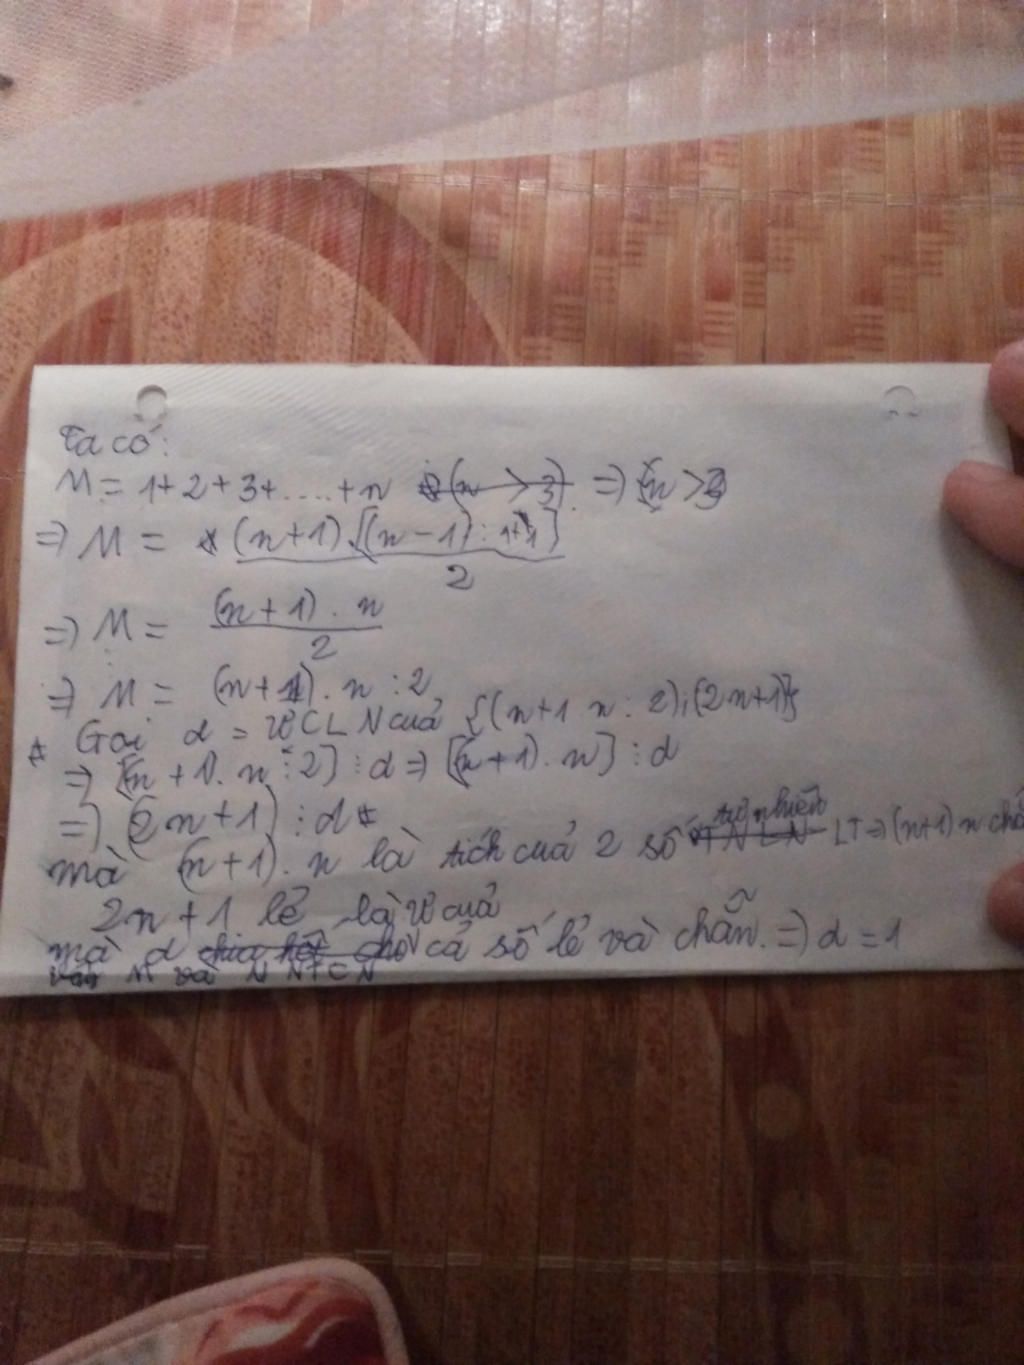 Ta có:
M = 1+2+3+.....+n (n > 3) => (n > 3
=> M = (n+1).[(n-1):1+1]
2
=> M = (n+1).n
2
=> M = (n+1).n:2
Gọi d = ƯCLN của {(n+1 n:2);(2n+1)}
=> [(n+1).n:2]⋮d => [(n+1).n]⋮d
=> (2n+1)⋮d
tự nhiên
mà (n+1).n là tích của 2 số LT => (n+1)n chẵ
2n+1 lẻ là ư của
mà d chia hết cho cả số lẻ và chẵn. => d = 1
vậy M và N NTCN